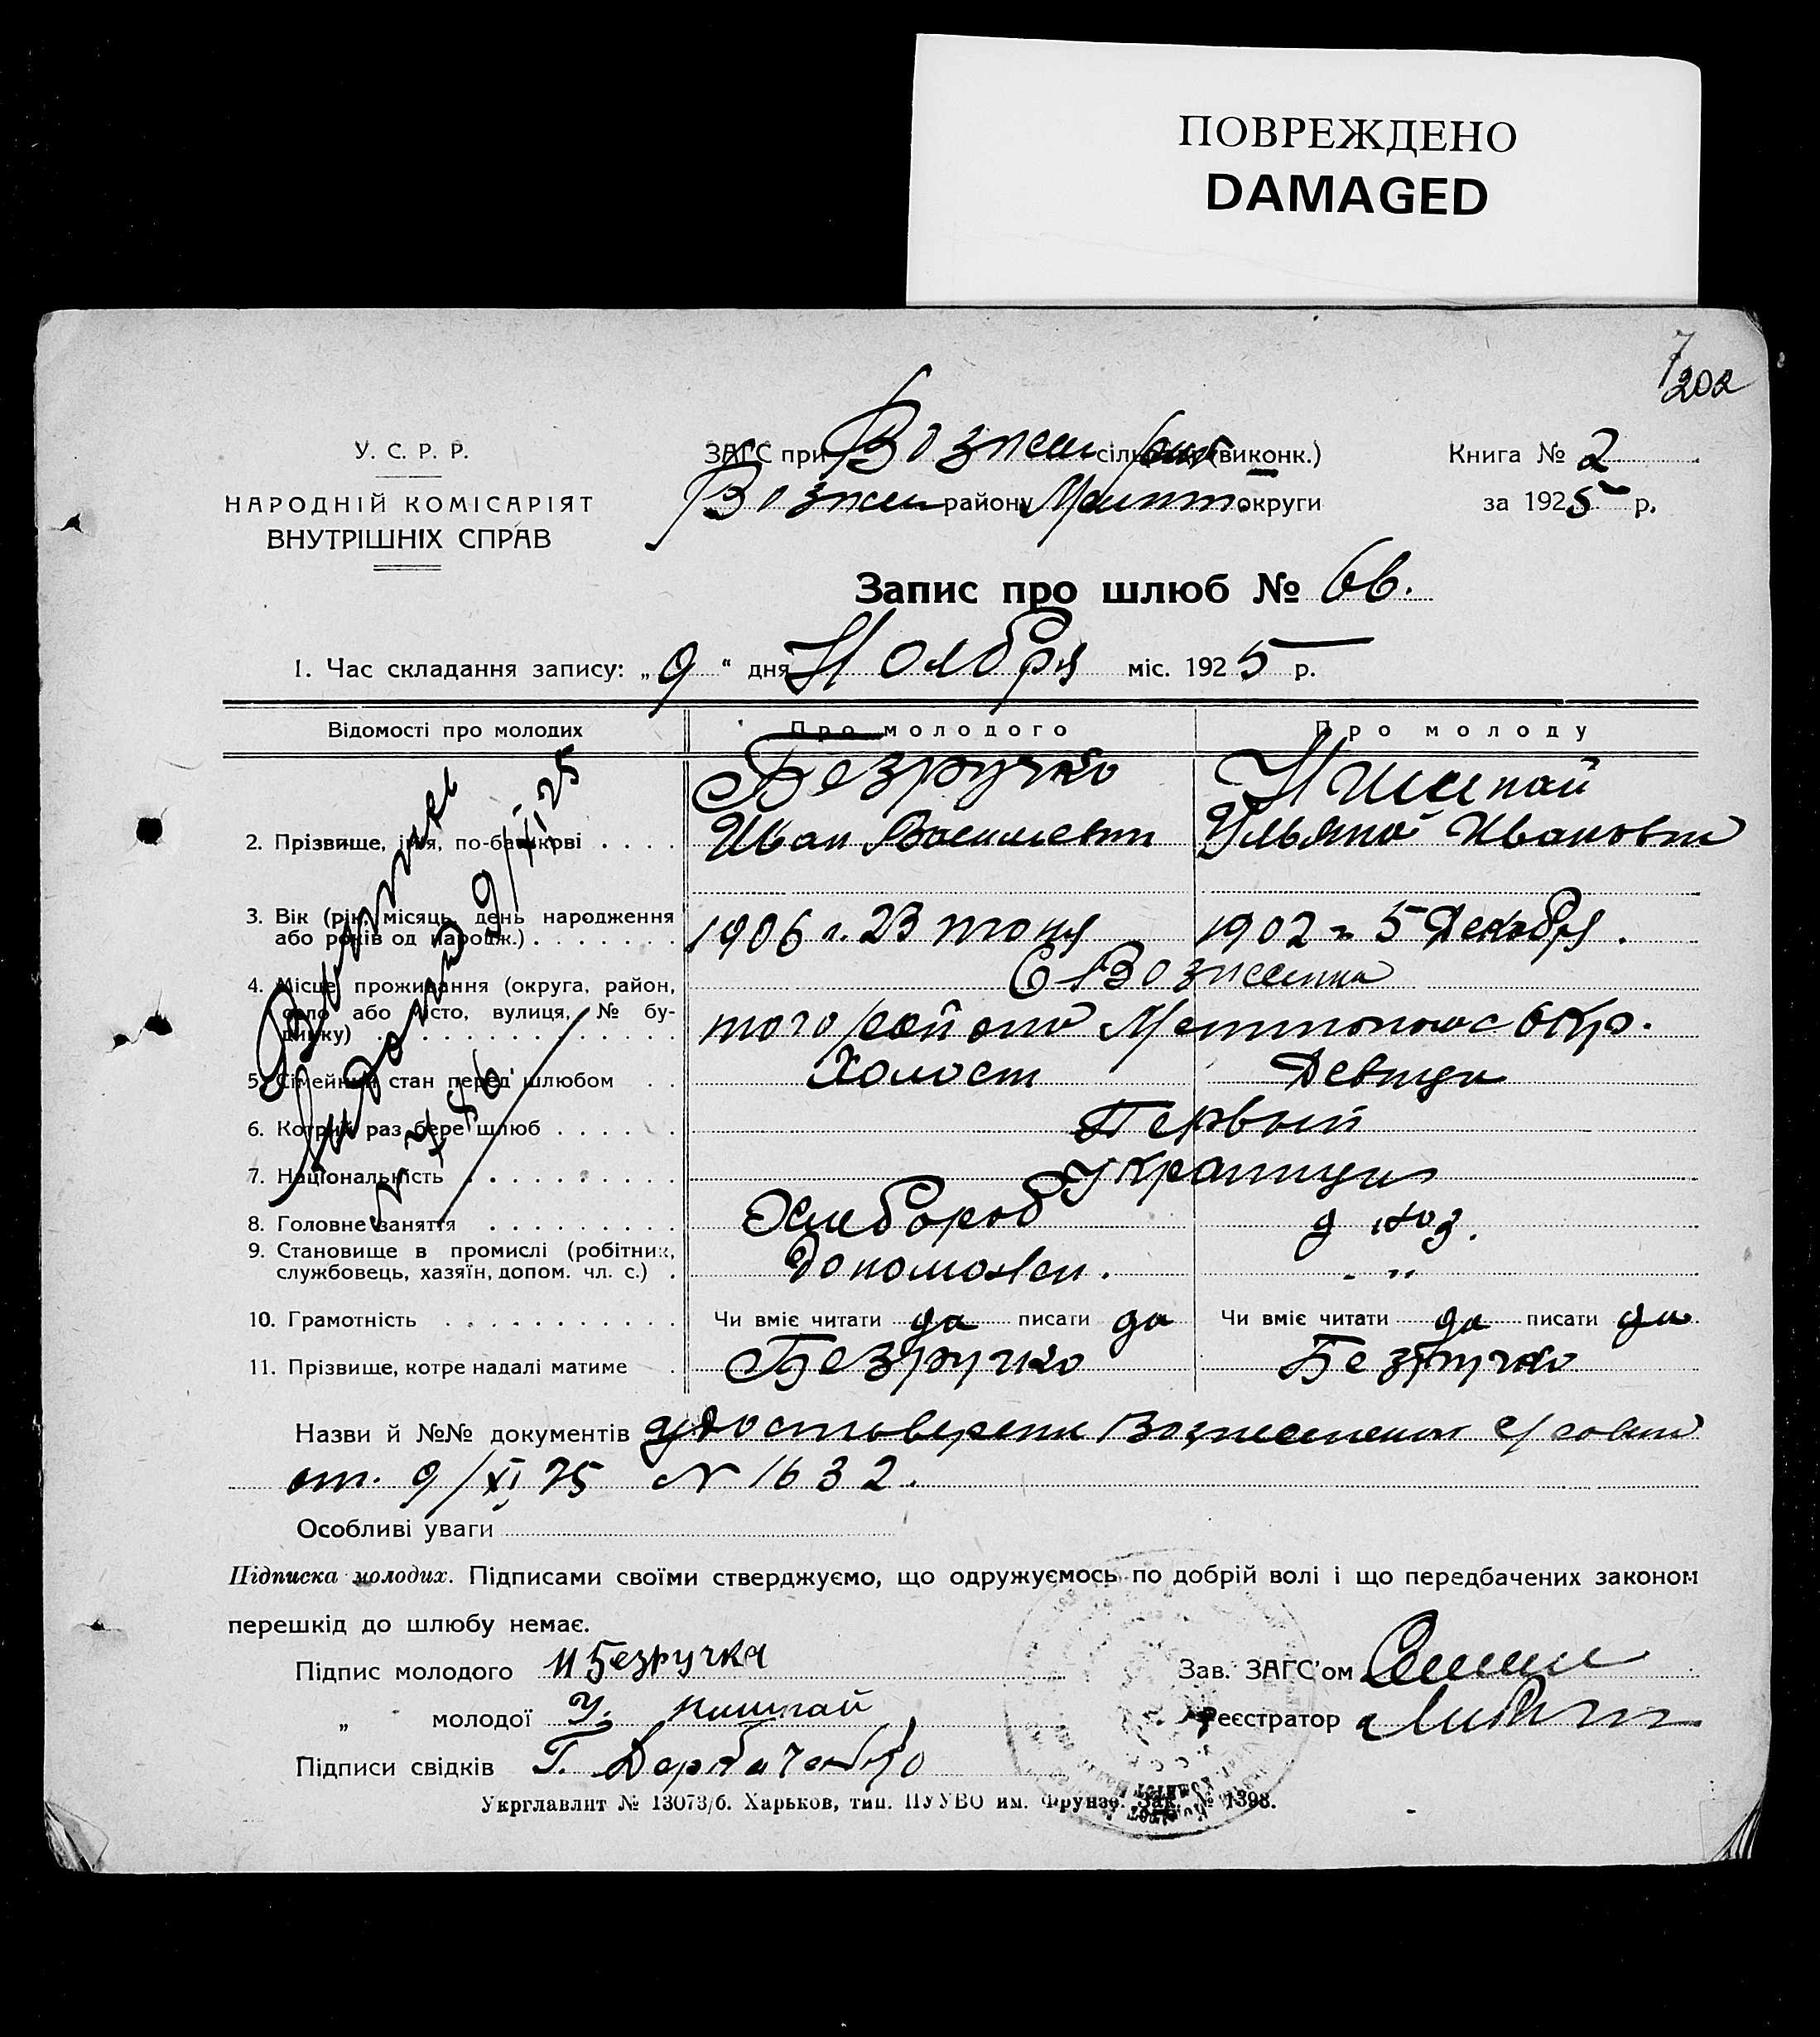 ПОВРЕЖДЕНО
DAMAGED
7
202
У. С. Р. Р.
НАРОДНІЙ КОМІСАРІЯТ
ВНУТРІШНІХ СПРАВ
ЗАГС при Вознесен (виконк.)
Вознесен району Мелитоп. округи
Книга № 2
за 1925 р.
Запис про шлюб № 66.
1. Час складання запису: „9“ дня Ноября міс. 1925 р.
Відомості про молодих Про молодого Про молоду
Безручко
2. Прізвище, ім'я, по-батькові Иван Васильевич Ульяна Ивановн
3. Вік (рік, місяць, день народження
або років од народж.) 1906 г. 23 июня 1902 г. 5 Декабря.
4. Місце проживання (округа, район, С Вознесенка
село або місто, вулиця, № бу-
динку) того района Мелитопольс Окр.
5. Сімейний стан перед шлюбом Холост Девица
6. Котрий раз бере шлюб Первый
7. Національність Украинцы
8. Головне заняття Хлебороб д хоз.
9. Становище в промислі (робітник,
службовець, хазяїн, допом. чл. с.) Допоможн. - „
10. Грамотність Чи вміє читати да писати да Чи вміє читати да писати да
11. Прізвище, котре надалі матиме Безручко Безручко
выдана 9/XI 25
Назви й №№ документів удостоверени Вознесенск с/совет
от. 9/XI 25 N 1632.
Особливі уваги
Підписка молодих. Підписами своїми стверджуємо, що одружуємось по добрій волі і що передбачених законом
перешкід до шлюбу немає.
Підпис молодого И Безручка
„ молодої У.
Підписи свідків Г.
Зав. ЗАГС'ом
Реєстратор
Укрглавлит № 13073/б. Харьков, тип. ПУУВО им. Фрунзе. Зак. № 1398.